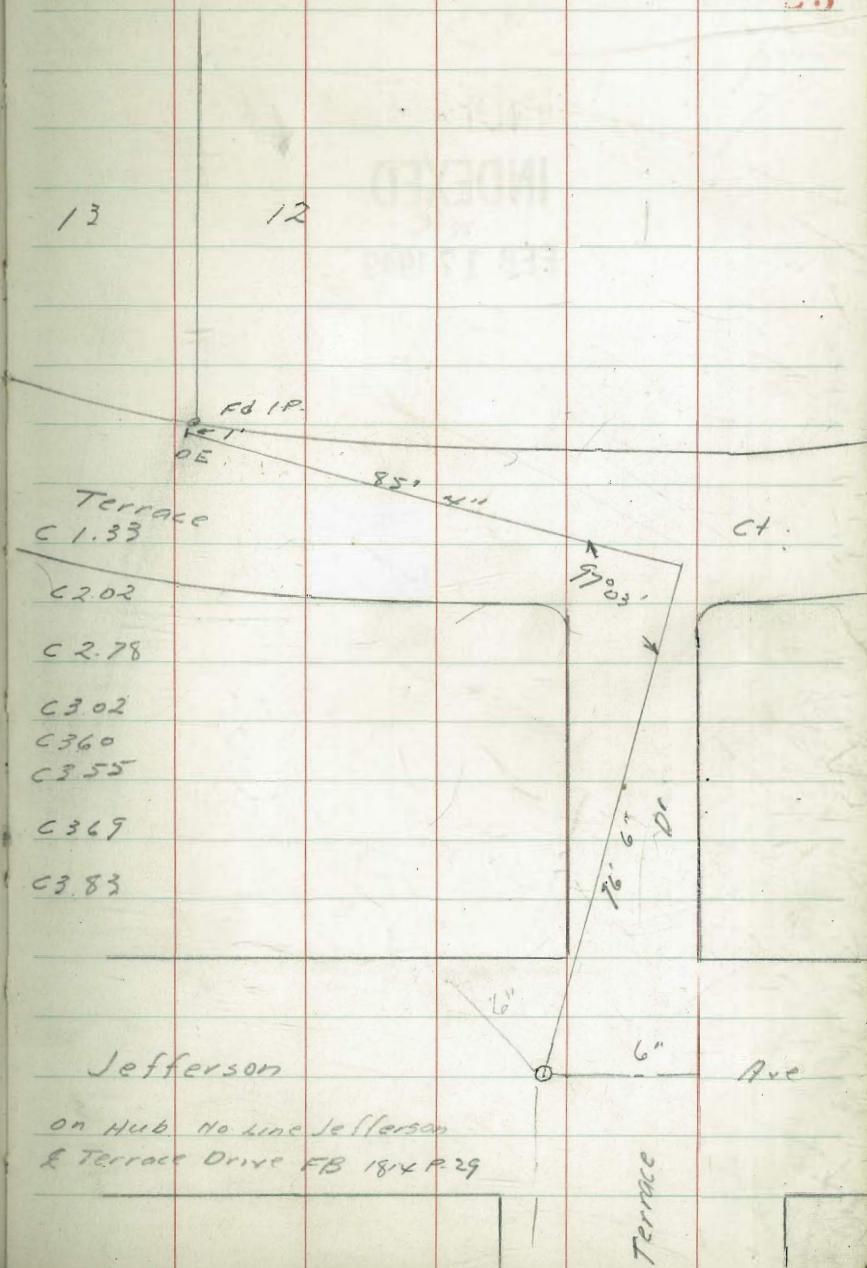 13 12
Fd 1.P.
1'
DE
85' 4"
Terrace Ct.
C 1.33
97° 03'
C 2.02
C 2.78
C 3.02
C 3 60
C 3 55
C 3 69
C 3.83
96' 6"
Dr
6"
6"
Jefferson Ave
on Hub No Line Jefferson
& Terrace Drive FB 1814 P. 29
Terrace